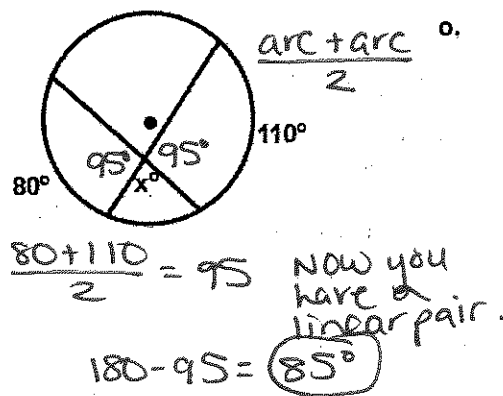 arc + arc
2
o.
95° 95°
110°
80°
x°
80+110
2
= 95
Now you
have a
linear pair.
180-95= 85°